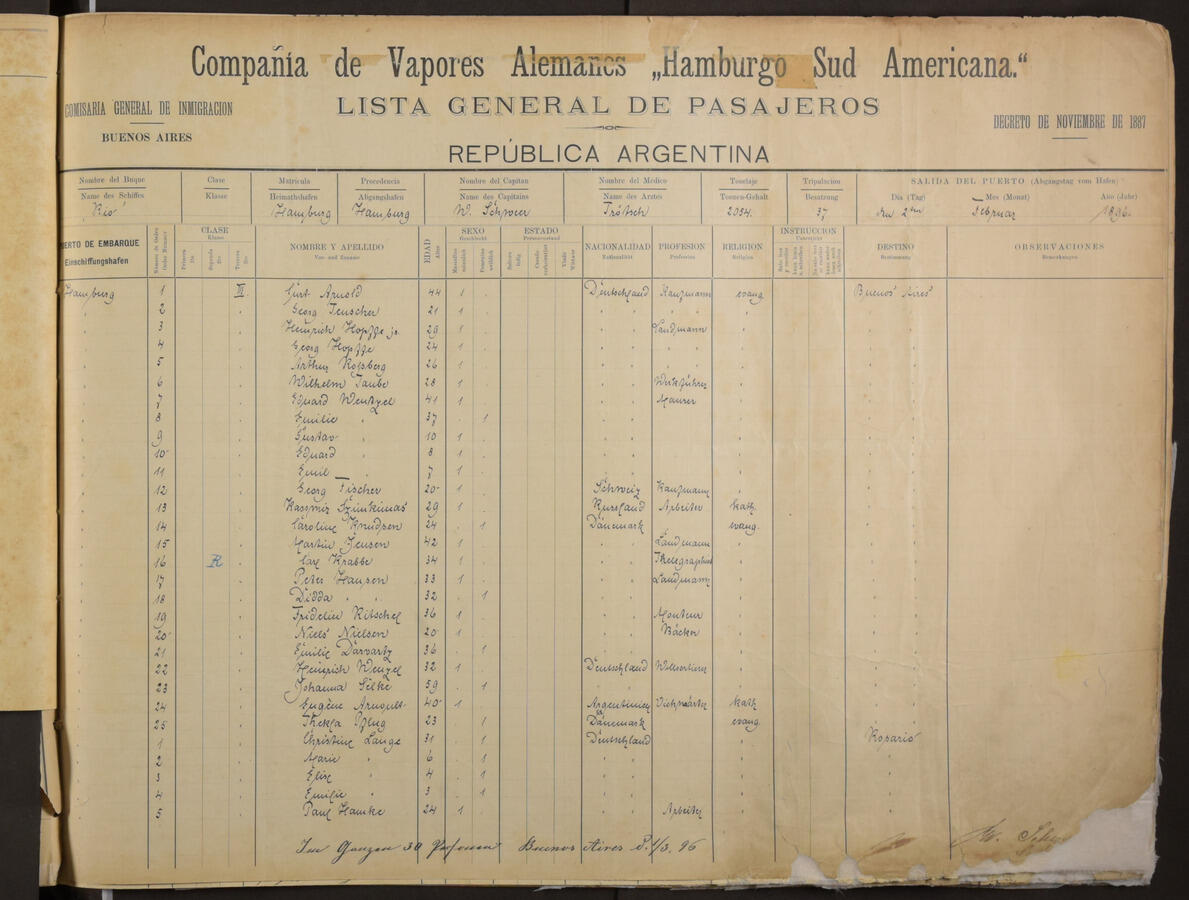 Compañía de Vapores Alemanes „Hamburgo Sud Americana.“
COMISARIA GENERAL DE INMIGRACION
LISTA GENERAL DE PASAJEROS
DECRETO DE NOVIEMBRE DE 1887
BUENOS AIRES
REPÚBLICA ARGENTINA
Nombre del Buque Clase Matricula Procedencia Nombre del Capitan Nombre del Médico Tonelaje Tripulacion SALIDA DEL PUERTO (Abgangstag vom Hafen)
Name des Schiffes Klasse Heimathshafen Abgangshafen Name des Capitains Name des Arztes Tonnen-Gehalt Besatzung Dia (Tag) Mes (Monat) Año (Jahr)
"Rio" Hamburg Hamburg W. Schweer Trötsch 2054. 37 den 2ten Februar 1896.
PUERTO DE EMBARQUE CLASE NOMBRE Y APELLIDO EDAD SEXO ESTADO NACIONALIDAD PROFESION RELIGION INSTRUCCION DESTINO OBSERVACIONES
Einschiffungshafen Klasse Vor- und Zuname Alter Geschlecht Personenstand Nationalität Profession Religion Bestimmung Bemerkungen
Hamburg 1 III Curt Arnold 44 1 Deutschland Kaufmann evang. Buenos Aires
2 Georg Teuscher 21 1
3 Heinrich Hopffe jr. 29 1 Landmann
4 Georg Hopffe 24 1
5 Arthur Roßberg 26 1
6 Wilhelm Taube 28 1 Werkführer
7 Eduard Wentzel 41 1 Maurer
8 Emilie " 37 1
9 Gustav " 10 1
10 Eduard " 8 1
11 Emil " 7 1
12 Georg Fischer 20 1 Schweiz Kaufmann
13 Kasimir 29 1 Russland Arbeiter kath.
14 Caroline Knudsen 24 1 Dänemark evang.
15 Martin Jensen 42 1 Landmann
16 R Carl Krabbe 34 1 Thelegraphist
17 Peter Hansen 33 1 Landmann
18 Didda " " 32 1
19 Fridelin Ritschel 36 1 Monteur
20 Niels Nielsen 20 1 Bäcker
21 Emilie Darvartz 36 1
22 Heinrich Wenzel 32 1 Deutschland Wollsortierer
23 Johanna Silke 59 1
24 Eugène 40 1 Argentinien kath.
25 Thekla Pflug 23 1 Dänemark evang.
1 Christine Lange 31 1 Deutschland Rosario
2 Marie " 6 1
3 Elise " 4 1
4 Emilie " 3 1
5 Paul Hamke 24 1 Arbeiter
Im Ganzen 30 Personen Buenos Aires d. 1/3. 96 W.